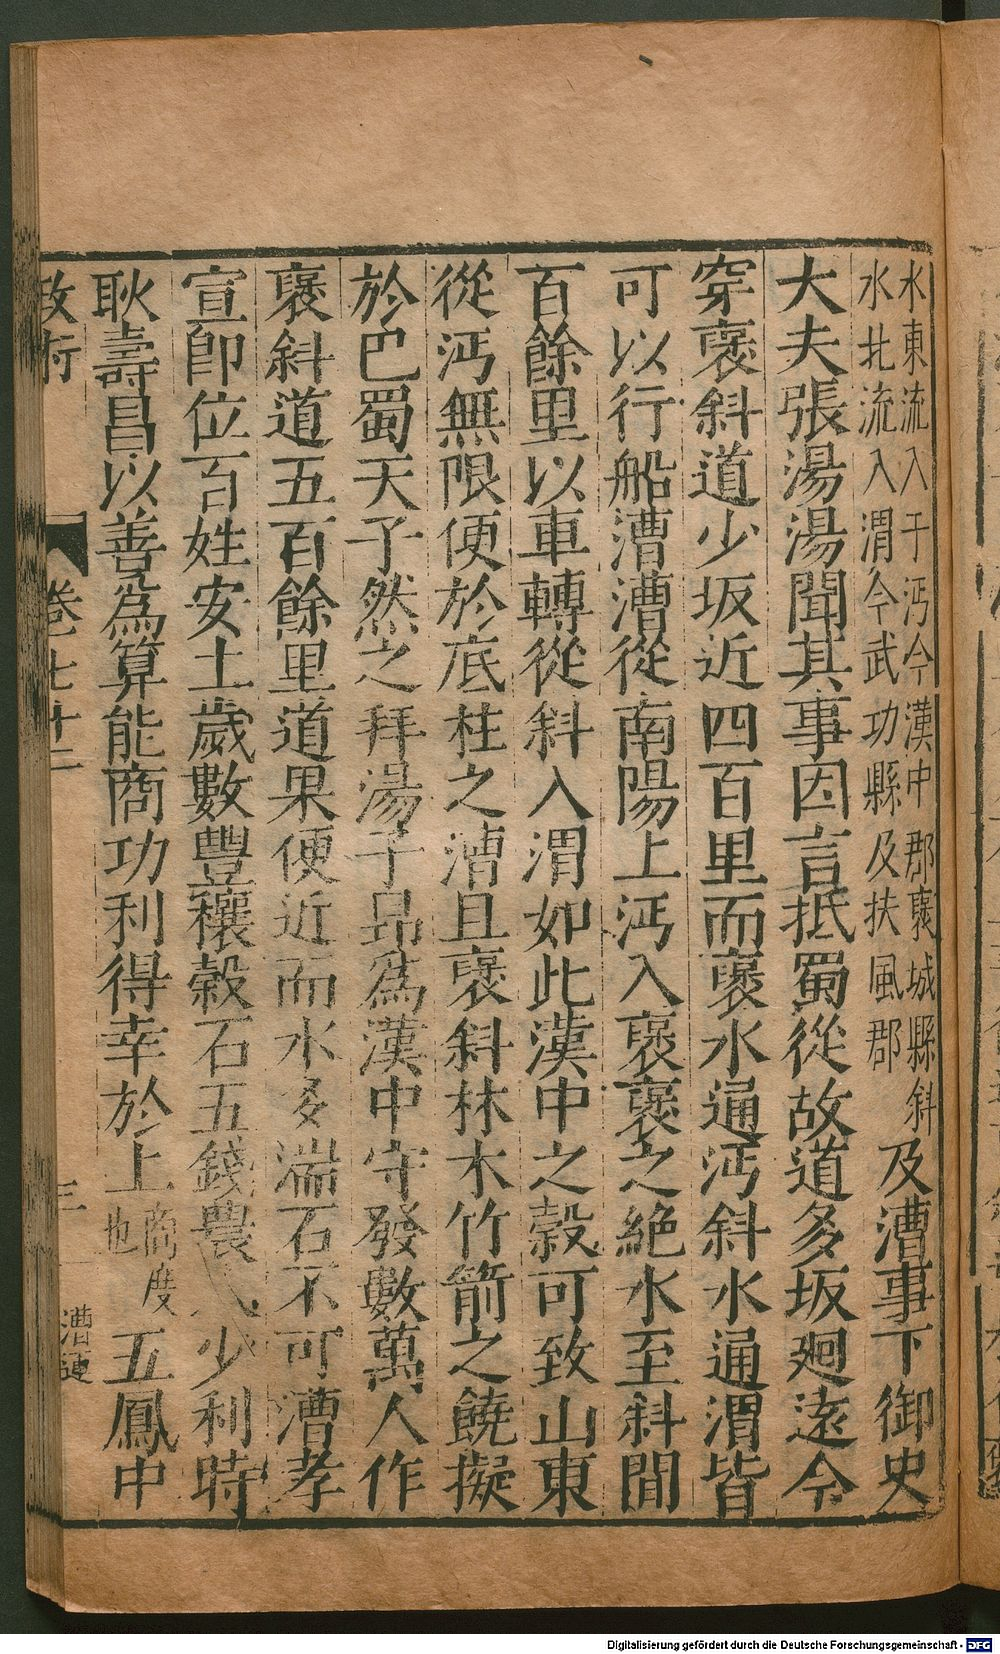 水東流入于沔今漢中郡褒城縣斜
水北流入渭今武功縣及扶風郡
及漕事下御史
大夫張湯湯聞其事因言抵蜀從故道多坂廻遠今
穿褒斜道少坂近四百里而褒水通沔斜水通渭皆
可以行船漕漕從南陽上沔入褒褒之絶水至斜間
百餘里以車轉從斜入渭如此漢中之榖可致山東
從沔無限便於底柱之漕且褒斜林木竹箭之饒擬
於巴蜀天子然之拜湯子昻為漢中守發數萬人作
褒斜道五百餘里道果便近而水多湍石不可漕孝
宣卽位百姓安土歲數豐穰榖石五錢農人少利時
耿壽昌以善為算能商功利得幸於上
商度
也
五鳳中
卷七十二
三
漕運
Digitalisierung gefördert durch die Deutsche Forschungsgemeinschaft - DFG